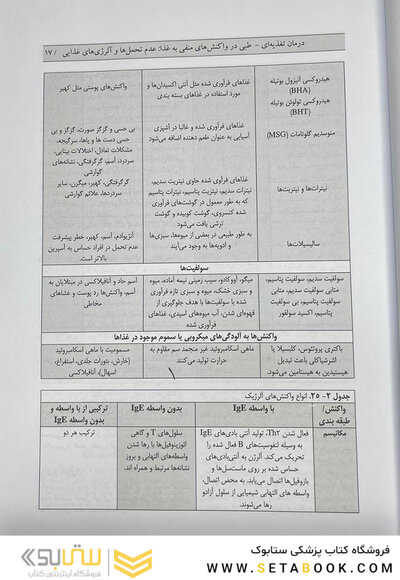 درمان تغذیه‌ای - طبی در واکنش‌های منفی به غذا: عدم تحمل‌ها و آلرژی‌های غذایی / ۱۷
هیدروکسی آنیزول بوتیله
(BHA)
هیدروکسی تولوئن بوتیله
(BHT)
غذاهای فرآوری شده مثل آنتی اکسیدان‌ها و
مورد استفاده در غذاهای بسته بندی
واکنش‌های پوستی مثل کهیر
منوسدیم گلوتامات (MSG)
غذاهای فرآوری شده و غالبا در آشپزی
آسیایی به عنوان طعم دهنده اضافه می‌شود
بی حسی و گزگز صورت، گزگز و بی
حسی دست ها و پاها، سرگیجه،
مشکلات تعادل، اختلالات بینایی،
سردرد، آسم، گرگرفتگی، نشانه‌های
گوارشی
نیترات‌ها و نیتریت‌ها
غذاهای فرآوه شده حاوی نیتریت سدیم،
نیترات سدیم، نیتریت پتاسیم، نیترات پتاسیم
که به طور معمول در گوشت‌های فرآوری
شده کنسروی، گوشت کوبیده و گوشت
ترشی یافت می‌شود
گرگرفتگی، کهیر، میگرن، سایر
سردردها، علائم گوارشی
سالیسیلات‌ها
به طور طبیعی در بعضی از میوه‌ها، سبزی‌ها
و ادویه‌ها به وجود می‌آیند
آنژیوادم، آسم، کهیر، خطر پیشرفت
عدم تحمل در افراد حساس به آسپرین
بالاتر است.
سولفیت‌ها
سولفیت سدیم، سولفیت پتاسیم،
متابی سولفیت سدیم، متابی
سولفیت پتاسیم، بی سولفیت
پتاسیم، اکسید سولفور
میگو، آووکادو، سیب زمینی نیمه آماده، میوه
و سبزی خشک، میوه و سبزی تازه فرآوری
شده با سولفیت‌ها با هدف جلوگیری از
قهوه‌ای شدن، آب میوه‌های اسیدی، غذاهای
فرآوری شده
آسم حاد و آنافیلاکسی در مبتلایان به
آسم، واکنش‌ها رد پوست و غشاهای
مخاطی
واکنش‌ها به آلودگی‌های میکروبی یا سموم موجود در غذاها
باکتری پروتئوس، کلبسیلا یا
اشرشیاکلی باعث تبدیل
هیستیدین به هیستامین می‌شود.
ماهی اسکامبروئید غیر منجمد سم مقاوم به
حرارت تولید می‌کنند
مسمومیت با ماهی اسکامبروئید
(خارش، بثورات جلدی، استفراغ،
اسهال)، آنافیلاکسی
جدول ۲-۲۵. انواع واکنش‌های آلرژیک
واکنش/
طبقه بندی
با واسطه IgE
بدون واسطه IgE
ترکیبی از با واسطه و
بدون واسطه IgE
مکانیسم
فعال شدن Th2، تولید آنتی بادی‌های IgE
به وسیله لنفوسیت‌های B فعال شده را
تحریک می‌کند. آلرژن به آنتی‌بادی‌های
حساس شده بر روی ماست‌سل‌ها و
بازوفیل‌ها اتصال می‌یابد. به محض اتصال،
واسطه های التهابی شیمیایی از سلول آزادو
رها می‌شوند.
سلول‌های T و گاهی
ائوزینوفیل‌ها با رها شدن
واسطه‌های التهابی و بروز
نشانه‌ها مرتبط و همراه اند.
ترکیب هر دو
فروشگاه کتاب پزشکی ستابوک
WWW.SETABOOK.COM
ستابوک
فروشگاه اینترنتی کتاب